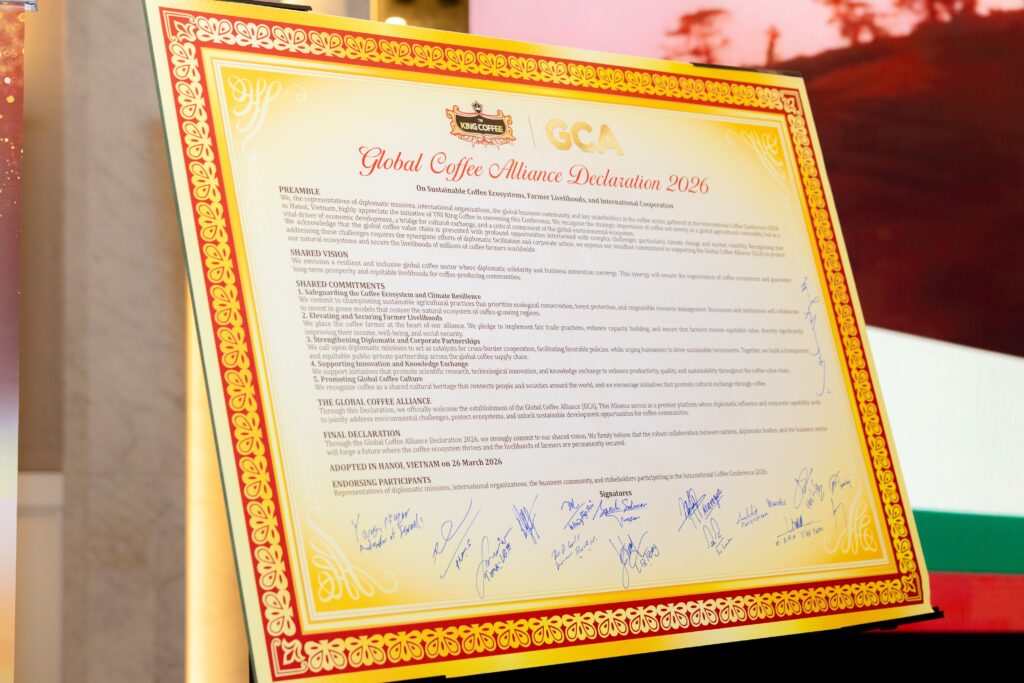 TNI
KING COFFEE
GCA
Global Coffee Alliance Declaration 2026
On Sustainable Coffee Ecosystems, Farmer Livelihoods, and International Cooperation
PREAMBLE
We, the representatives of diplomatic missions, international organizations, the global business community, and key stakeholders in the coffee sector, gathered at the International Coffee Conference 2026
in Hanoi, Vietnam, highly appreciate the initiative of TNI King Coffee in convening this Conference. We recognize the strategic importance of coffee not merely as a global agricultural commodity, but as a
vital driver of economic development, a bridge for cultural exchange, and a critical component of the global environmental ecosystem.
We acknowledge that the global coffee value chain is presented with profound opportunities intertwined with complex challenges, particularly climate change and market volatility. Recognizing that
addressing these challenges requires the synergistic efforts of diplomatic facilitation and corporate action, we express our steadfast commitment to supporting the Global Coffee Alliance (GCA) to protect
our natural ecosystems and secure the livelihoods of millions of coffee farmers worldwide.
SHARED VISION
We envision a resilient and inclusive global coffee sector where diplomatic solidarity and business innovation converge. This synergy will ensure the regeneration of coffee ecosystems and guarantee
long-term prosperity and equitable livelihoods for coffee-producing communities.
SHARED COMMITMENTS
1. Safeguarding the Coffee Ecosystem and Climate Resilience
We commit to championing sustainable agricultural practices that prioritize ecological conservation, forest protection, and responsible resource management. Businesses and institutions will collaborate
to invest in green models that restore the natural ecosystem of coffee-growing regions.
2. Elevating and Securing Farmer Livelihoods
We place the coffee farmer at the heart of our alliance. We pledge to implement fair trade practices, enhance capacity building, and ensure that farmers receive equitable value, thereby significantly
improving their income, well-being, and social security.
3. Strengthening Diplomatic and Corporate Partnerships
We call upon diplomatic missions to act as catalysts for cross-border cooperation, facilitating favorable policies, while urging businesses to drive sustainable investments. Together, we build a transparent,
and equitable public-private partnership across the global coffee supply chain.
4. Supporting Innovation and Knowledge Exchange
We support initiatives that promote scientific research, technological innovation, and knowledge exchange to enhance productivity, quality, and sustainability throughout the coffee value chain.
5. Promoting Global Coffee Culture
We recognize coffee as a shared cultural heritage that connects people and societies around the world, and we encourage initiatives that promote cultural exchange through coffee.
THE GLOBAL COFFEE ALLIANCE
Through this Declaration, we officially welcome the establishment of the Global Coffee Alliance (GCA). This Alliance serves as a premier platform where diplomatic influence and corporate capability unite
to jointly address environmental challenges, protect ecosystems, and unlock sustainable development opportunities for coffee communities.
FINAL DECLARATION
Through the Global Coffee Alliance Declaration 2026, we strongly commit to our shared vision. We firmly believe that the robust collaboration between nations, diplomatic bodies, and the business sector
will forge a future where the coffee ecosystem thrives and the livelihoods of farmers are permanently secured.
ADOPTED IN HANOI, VIETNAM on 26 March 2026
ENDORSING PARTICIPANTS
Representatives of diplomatic missions, international organizations, the business community, and stakeholders participating in the International Coffee Conference 2026.
Signatures
of Israel